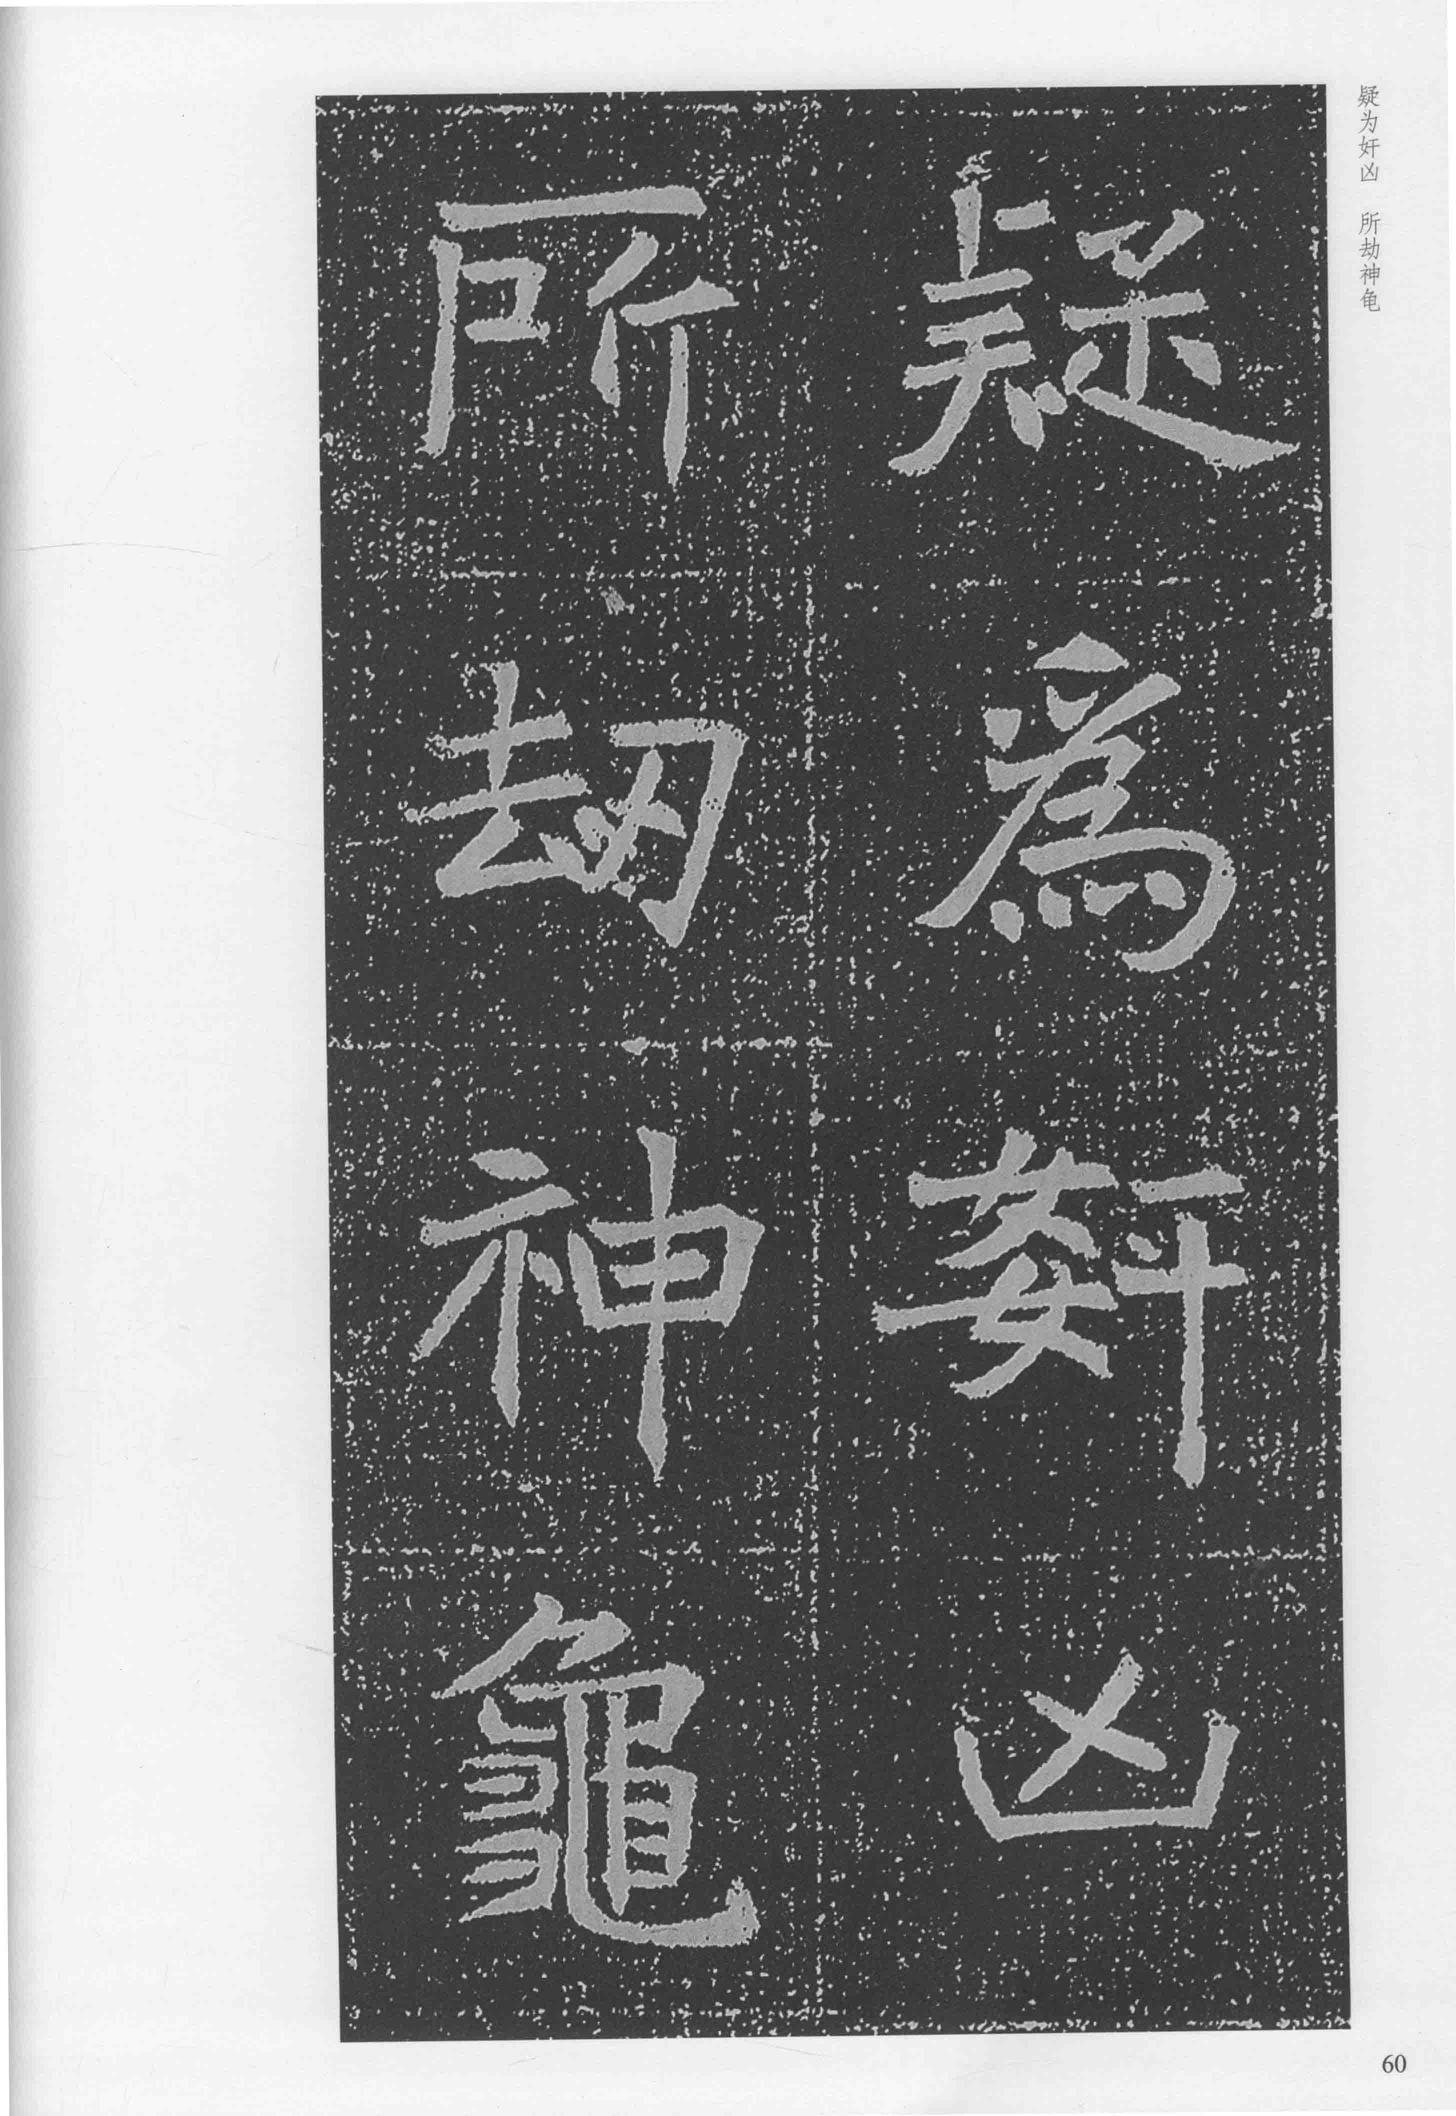 疑为奸凶　所劫神龟
疑爲姧凶
所刼神龜
60